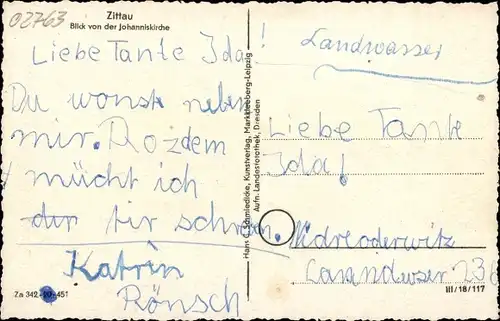 02763
Zittau
Blick von der Johanniskirche
Liebe Tante Ida!
Du wonste neben
mir. Rozdem
mücht ich
der tir schreiben.
Katrin
Rönsch
Za 342 451
Hans C. Schmiedicke, Kunstverlag, Markkleeberg-Leipzig
Aufn. Landesfotothek, Dresden
Landwasser
Liebe Tante
Ida!
Nidreoderwitz
III/18/117